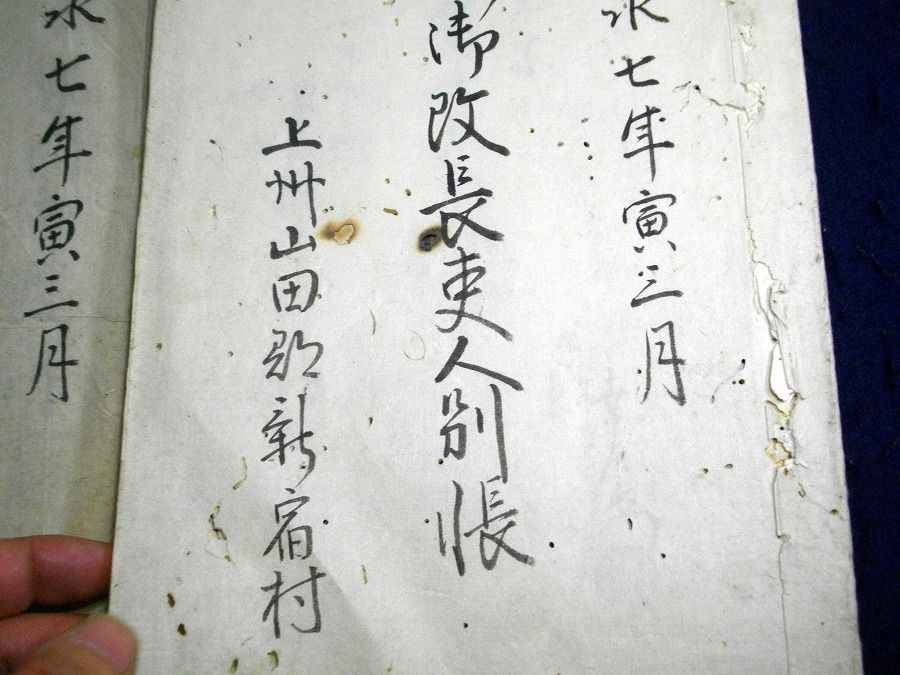 永七年寅三月
御改長吏人別帳
上州山田郡新宿村
永七年寅三月